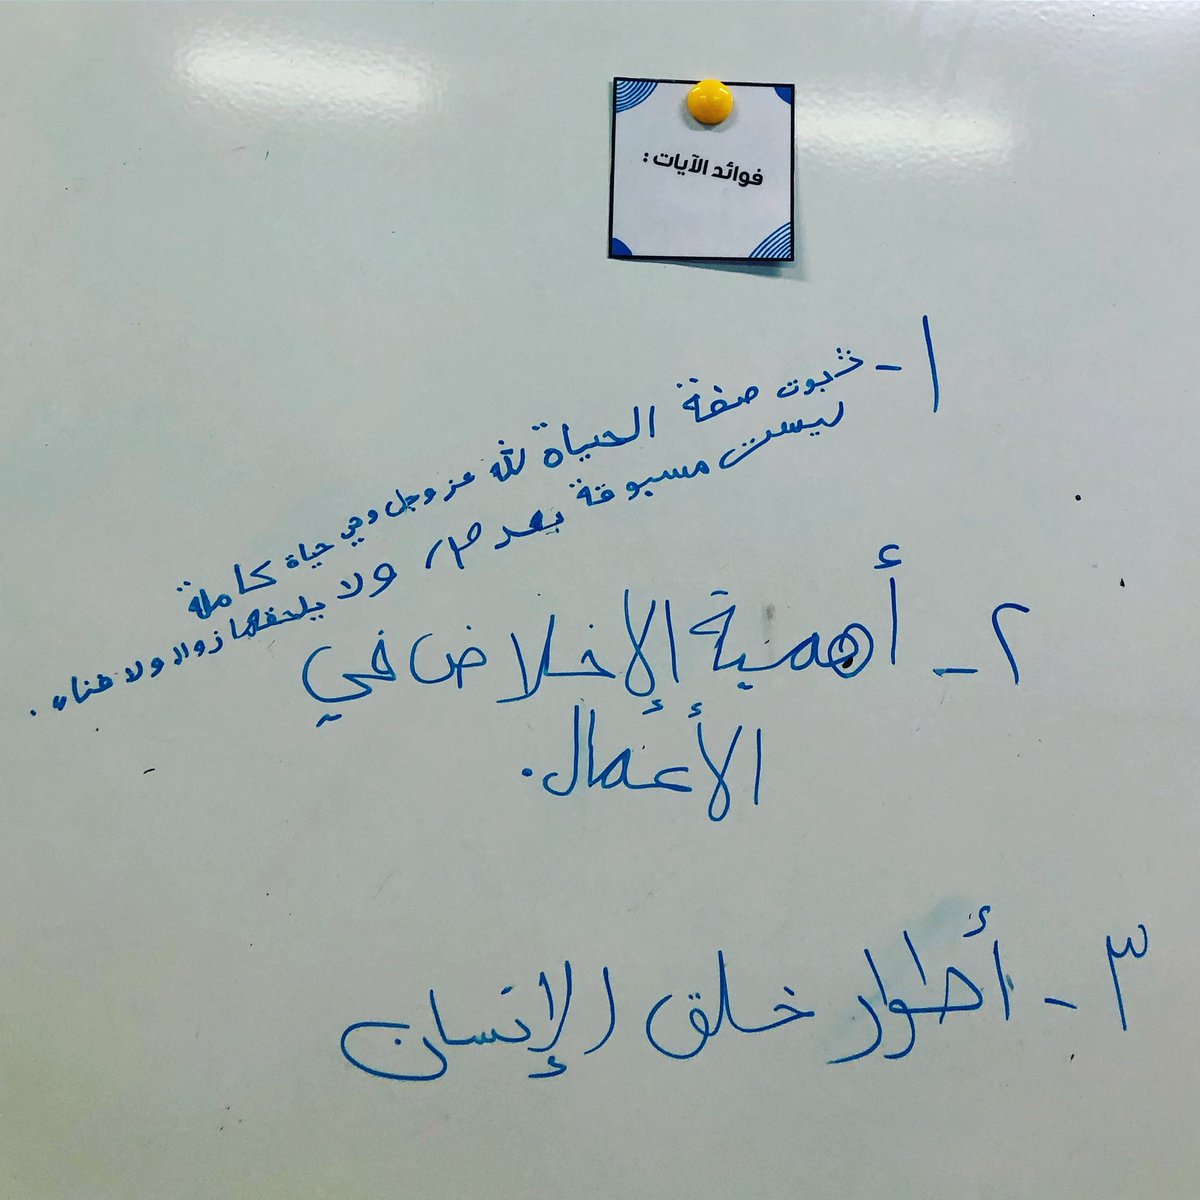 فوائد الآيات :
١- ثبوت صفة الحياة لله عز وجل وهي حياة كاملة
ليست مسبوقة بعدم، ولا يلحقها زوال ولا فناء.
٢- أهمية الإخلاص في
الأعمال.
٣- أطوار خلق الإنسان